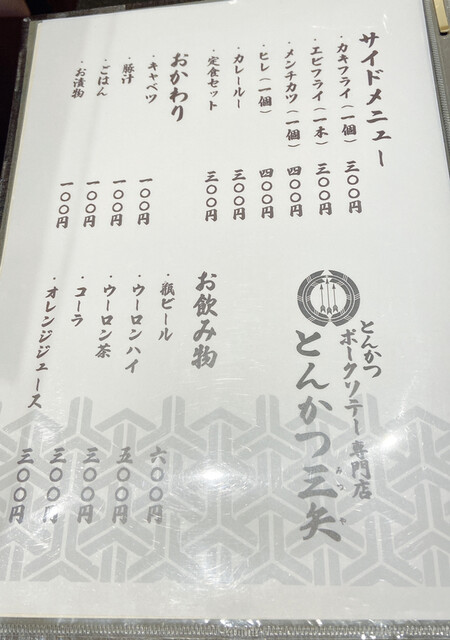 サイドメニュー
・カキフライ（一個） 三〇〇円
・エビフライ（一本） 三〇〇円
・メンチカツ（一個） 四〇〇円
・ヒレ（一個） 四〇〇円
・カレールー 三〇〇円
・定食セット 三〇〇円
おかわり
・キャベツ 一〇〇円
・豚汁 一〇〇円
・ごはん 一〇〇円
・お漬物 一〇〇円
とんかつ
ポークソテー専門店
とんかつ三矢
みつや
お飲み物
・瓶ビール 六〇〇円
・ウーロンハイ 五〇〇円
・ウーロン茶 三〇〇円
・コーラ 三〇〇円
・オレンジジュース 三〇〇円